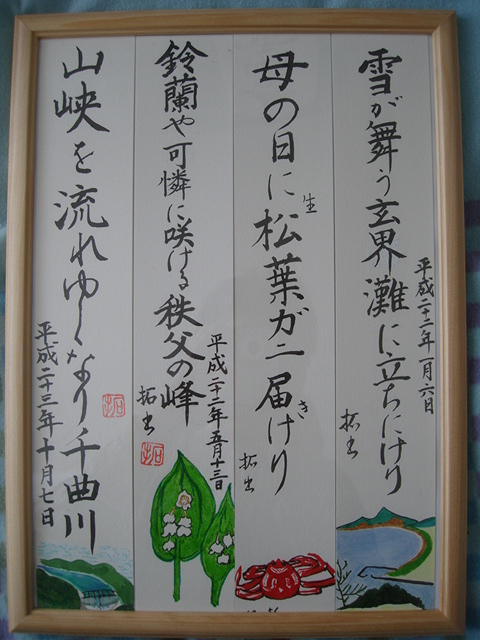 雪が舞う玄界灘に立ちにけり
平成二十二年一月六日
母の日に松葉ガニ届けり
生
き
鈴蘭や可憐に咲ける秩父の峰
平成二十二年五月十三日
山峡を流れゆくなり千曲川
平成二十三年十月七日